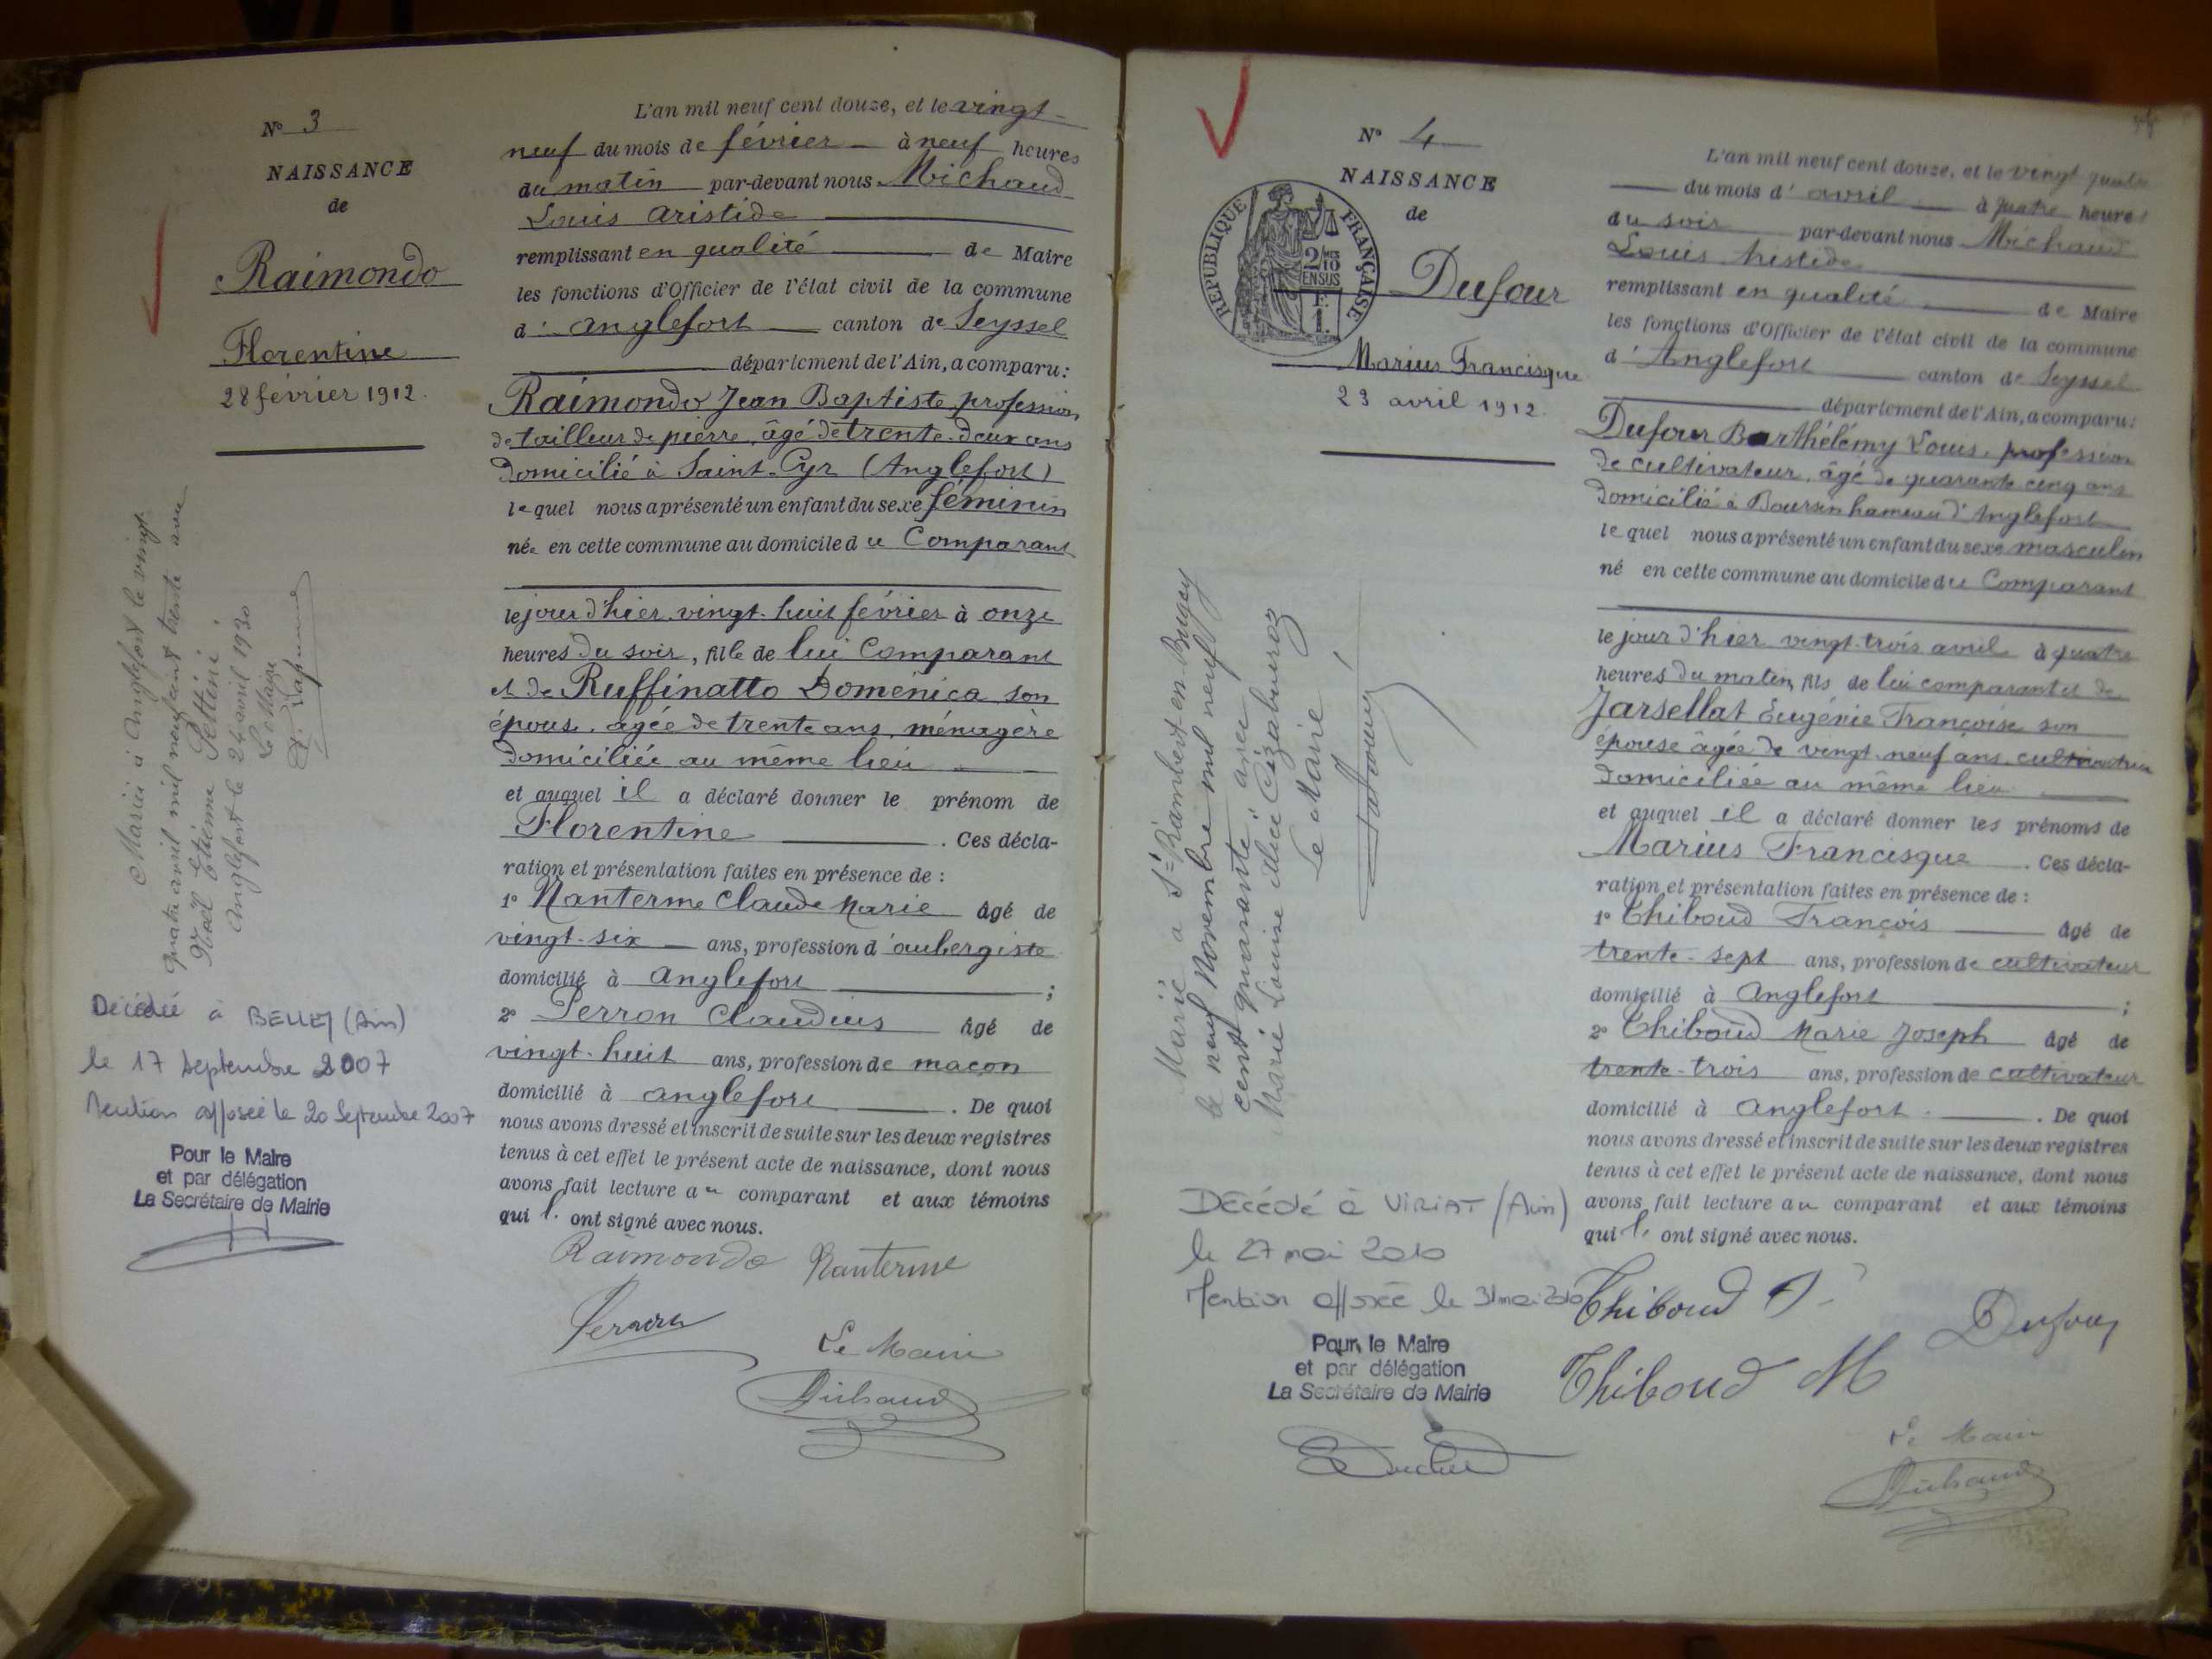 N° 3
NAISSANCE
de
Raimondo
Florentine
28 février 1912.
Mariée à Anglefort le vingt
quatre avril mil neuf cent trente avec
Noël Etienne Pettini
Anglefort le 24 avril 1930
Le Maire
Décédée à BELLEY (Ain)
le 17 septembre 2007
Mention apposée le 20 Septembre 2007
Pour le Maire
et par délégation
La Secrétaire de Mairie
L'an mil neuf cent douze, et le vingt-
neuf du mois de février à neuf heures
du matin par-devant nous Michaud
Louis Aristide
remplissant en qualité de Maire
les fonctions d'Officier de l'état civil de la commune
d' Anglefort canton de Seyssel
département de l'Ain, a comparu:
Raimondo Jean Baptiste, profession
de tailleur de pierre, âgé de trente-deux ans
domicilié à Saint-Cyr (Anglefort)
lequel nous a présenté un enfant du sexe féminin
née en cette commune au domicile du Comparant
le jour d'hier vingt-huit février à onze
heures du soir, fille de lui Comparant
et de Ruffinatto Doménica son
épouse, agée de trente ans, ménagère
domiciliée au même lieu
et auquel il a déclaré donner le prénom de
Florentine . Ces décla-
ration et présentation faites en présence de :
1° Nanterme Claude Marie âgé de
vingt-six ans, profession d'aubergiste
domicilié à Anglefort ;
2° Perron Claudius âgé de
vingt-huit ans, profession de maçon
domicilié à Anglefort . De quoi
nous avons dressé et inscrit de suite sur les deux registres
tenus à cet effet le présent acte de naissance, dont nous
avons fait lecture au comparant et aux témoins
qui l' ont signé avec nous.
Raimondo Nanterme
Perron
Le Maire
Michaud
N° 4
NAISSANCE
de
REPUBLIQUE FRANÇAISE
2/10
EN SUS
1 F.
Dufour
Marius Francisque
23 avril 1912.
Marié à St Rambert-en-Bugey
le neuf Novembre mil neuf
cent quarante avec
Marie Louise Alice
Le Maire
Décédé à VIRIAT (Ain)
le 27 mai 2010
Mention apposée le 31 mai 2010
Pour le Maire
et par délégation
La Secrétaire de Mairie
L'an mil neuf cent douze, et le vingt quatre
du mois d' avril à quatre heures
du soir par-devant nous Michaud
Louis Aristide
remplissant en qualité de Maire
les fonctions d'Officier de l'état civil de la commune
d' Anglefort canton de Seyssel
département de l'Ain, a comparu:
Dufour Barthélémy Louis, profession
de cultivateur, âgé de quarante cinq ans
domicilié à Boursin hameau d'Anglefort
lequel nous a présenté un enfant du sexe masculin
né en cette commune au domicile du Comparant
le jour d'hier vingt-trois avril à quatre
heures du matin, fils de lui comparant et de
Jarsellat Eugénie Françoise son
épouse âgée de vingt-neuf ans, cultivatrice
domiciliée au même lieu
et auquel il a déclaré donner les prénoms de
Marius Francisque . Ces décla-
ration et présentation faites en présence de :
1° Thiboud François âgé de
trente-sept ans, profession de cultivateur
domicilié à Anglefort ;
2° Thiboud Marie Joseph âgé de
trente-trois ans, profession de cultivateur
domicilié à Anglefort . De quoi
nous avons dressé et inscrit de suite sur les deux registres
tenus à cet effet le présent acte de naissance, dont nous
avons fait lecture au comparant et aux témoins
qui l' ont signé avec nous.
Thiboud F.
Dufour
Thiboud M
Le Maire
Michaud